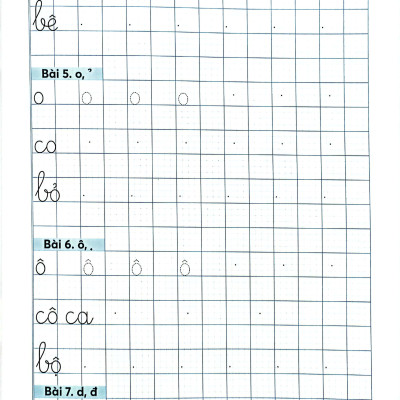 bê
Bài 5. o, ̉
o o o o
co
bỏ
Bài 6. ô, .
ô ô ô ô
cô ca
bộ
Bài 7. d, đ